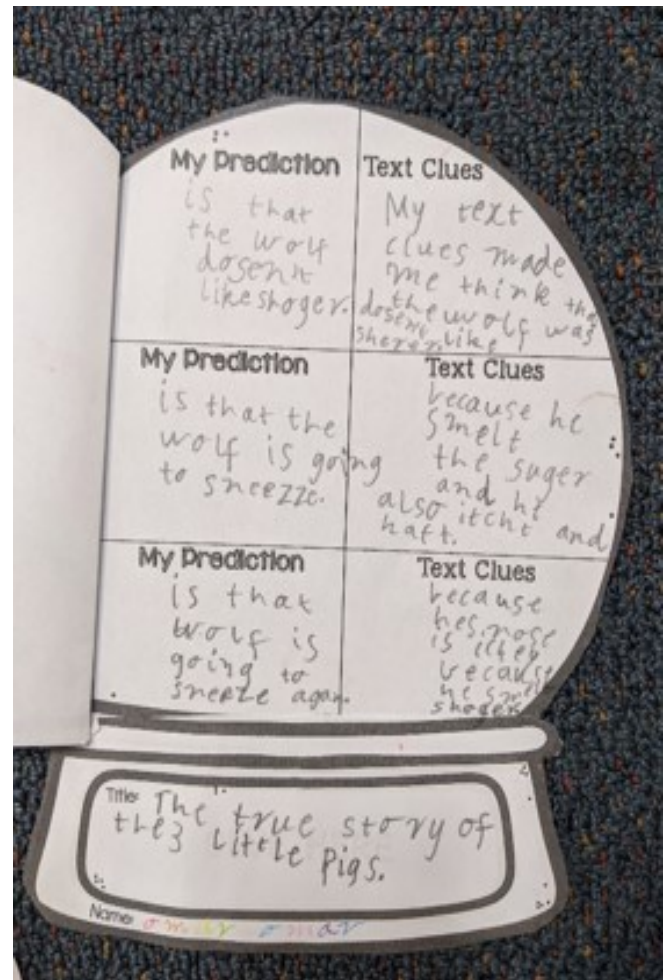 My Prediction
is that
the wolf
dosent
likeshoger.
Text Clues
My text
clues made
me think tha
the wolf was
dosent like
sherer.
My Prediction
is that the
wolf is going
to sneezze.
Text Clues
because he
smelt
the suger
and he
also itcht and
haft.
My Prediction
is that
wolf is
going to
sneeze again.
Text Clues
because
hes nose
is itchey
because
he smelt
shoger
Title: The true story of
the3 little pigs.
Name: omar omar